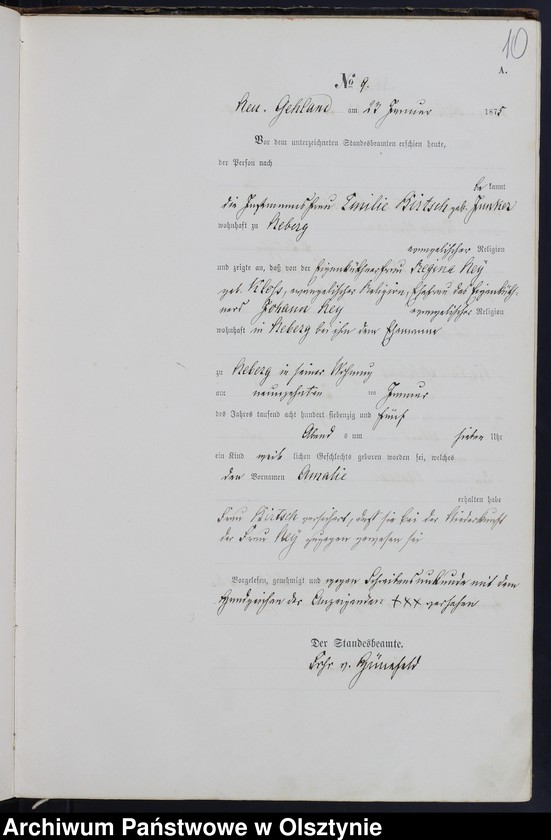 10
A.
No 9.
Neu-Gehland am 23 Januar 1875
Vor dem unterzeichneten Standesbeamten erschien heute,
der Person nach
be kannt
die Instmannsfrau Emilie Birtsch geb. Junker
wohnhaft zu Reberg
evangelischer Religion
und zeigte an, daß von der Eigenkäthnerfrau Regina Rey
geb. Kloss, evangelischer Religion, Ehefrau des Eigenkäth-
ners Johann Rey evangelischer Religion
wohnhaft in Reberg bei ihm dem Ehemanne
zu Reberg in seiner Wohnung
am neunzehnten ten Januar
des Jahres tausend acht hundert siebenzig und fünf
Abend s um sieben Uhr
ein Kind weib lichen Geschlechts geboren worden sei, welches
den Vornamen Amalie
erhalten habe
Frau Birtsch versichert, daß sie bei der Niederkunft
der Frau Rey zugegen gewesen sei
Vorgelesen, genehmigt und wegen Schreibensunkunde mit dem
Handzeichen der Anzeigenden +++ versehen
Der Standesbeamte.
Frhr v. Hünefeld
Archiwum Państwowe w Olsztynie